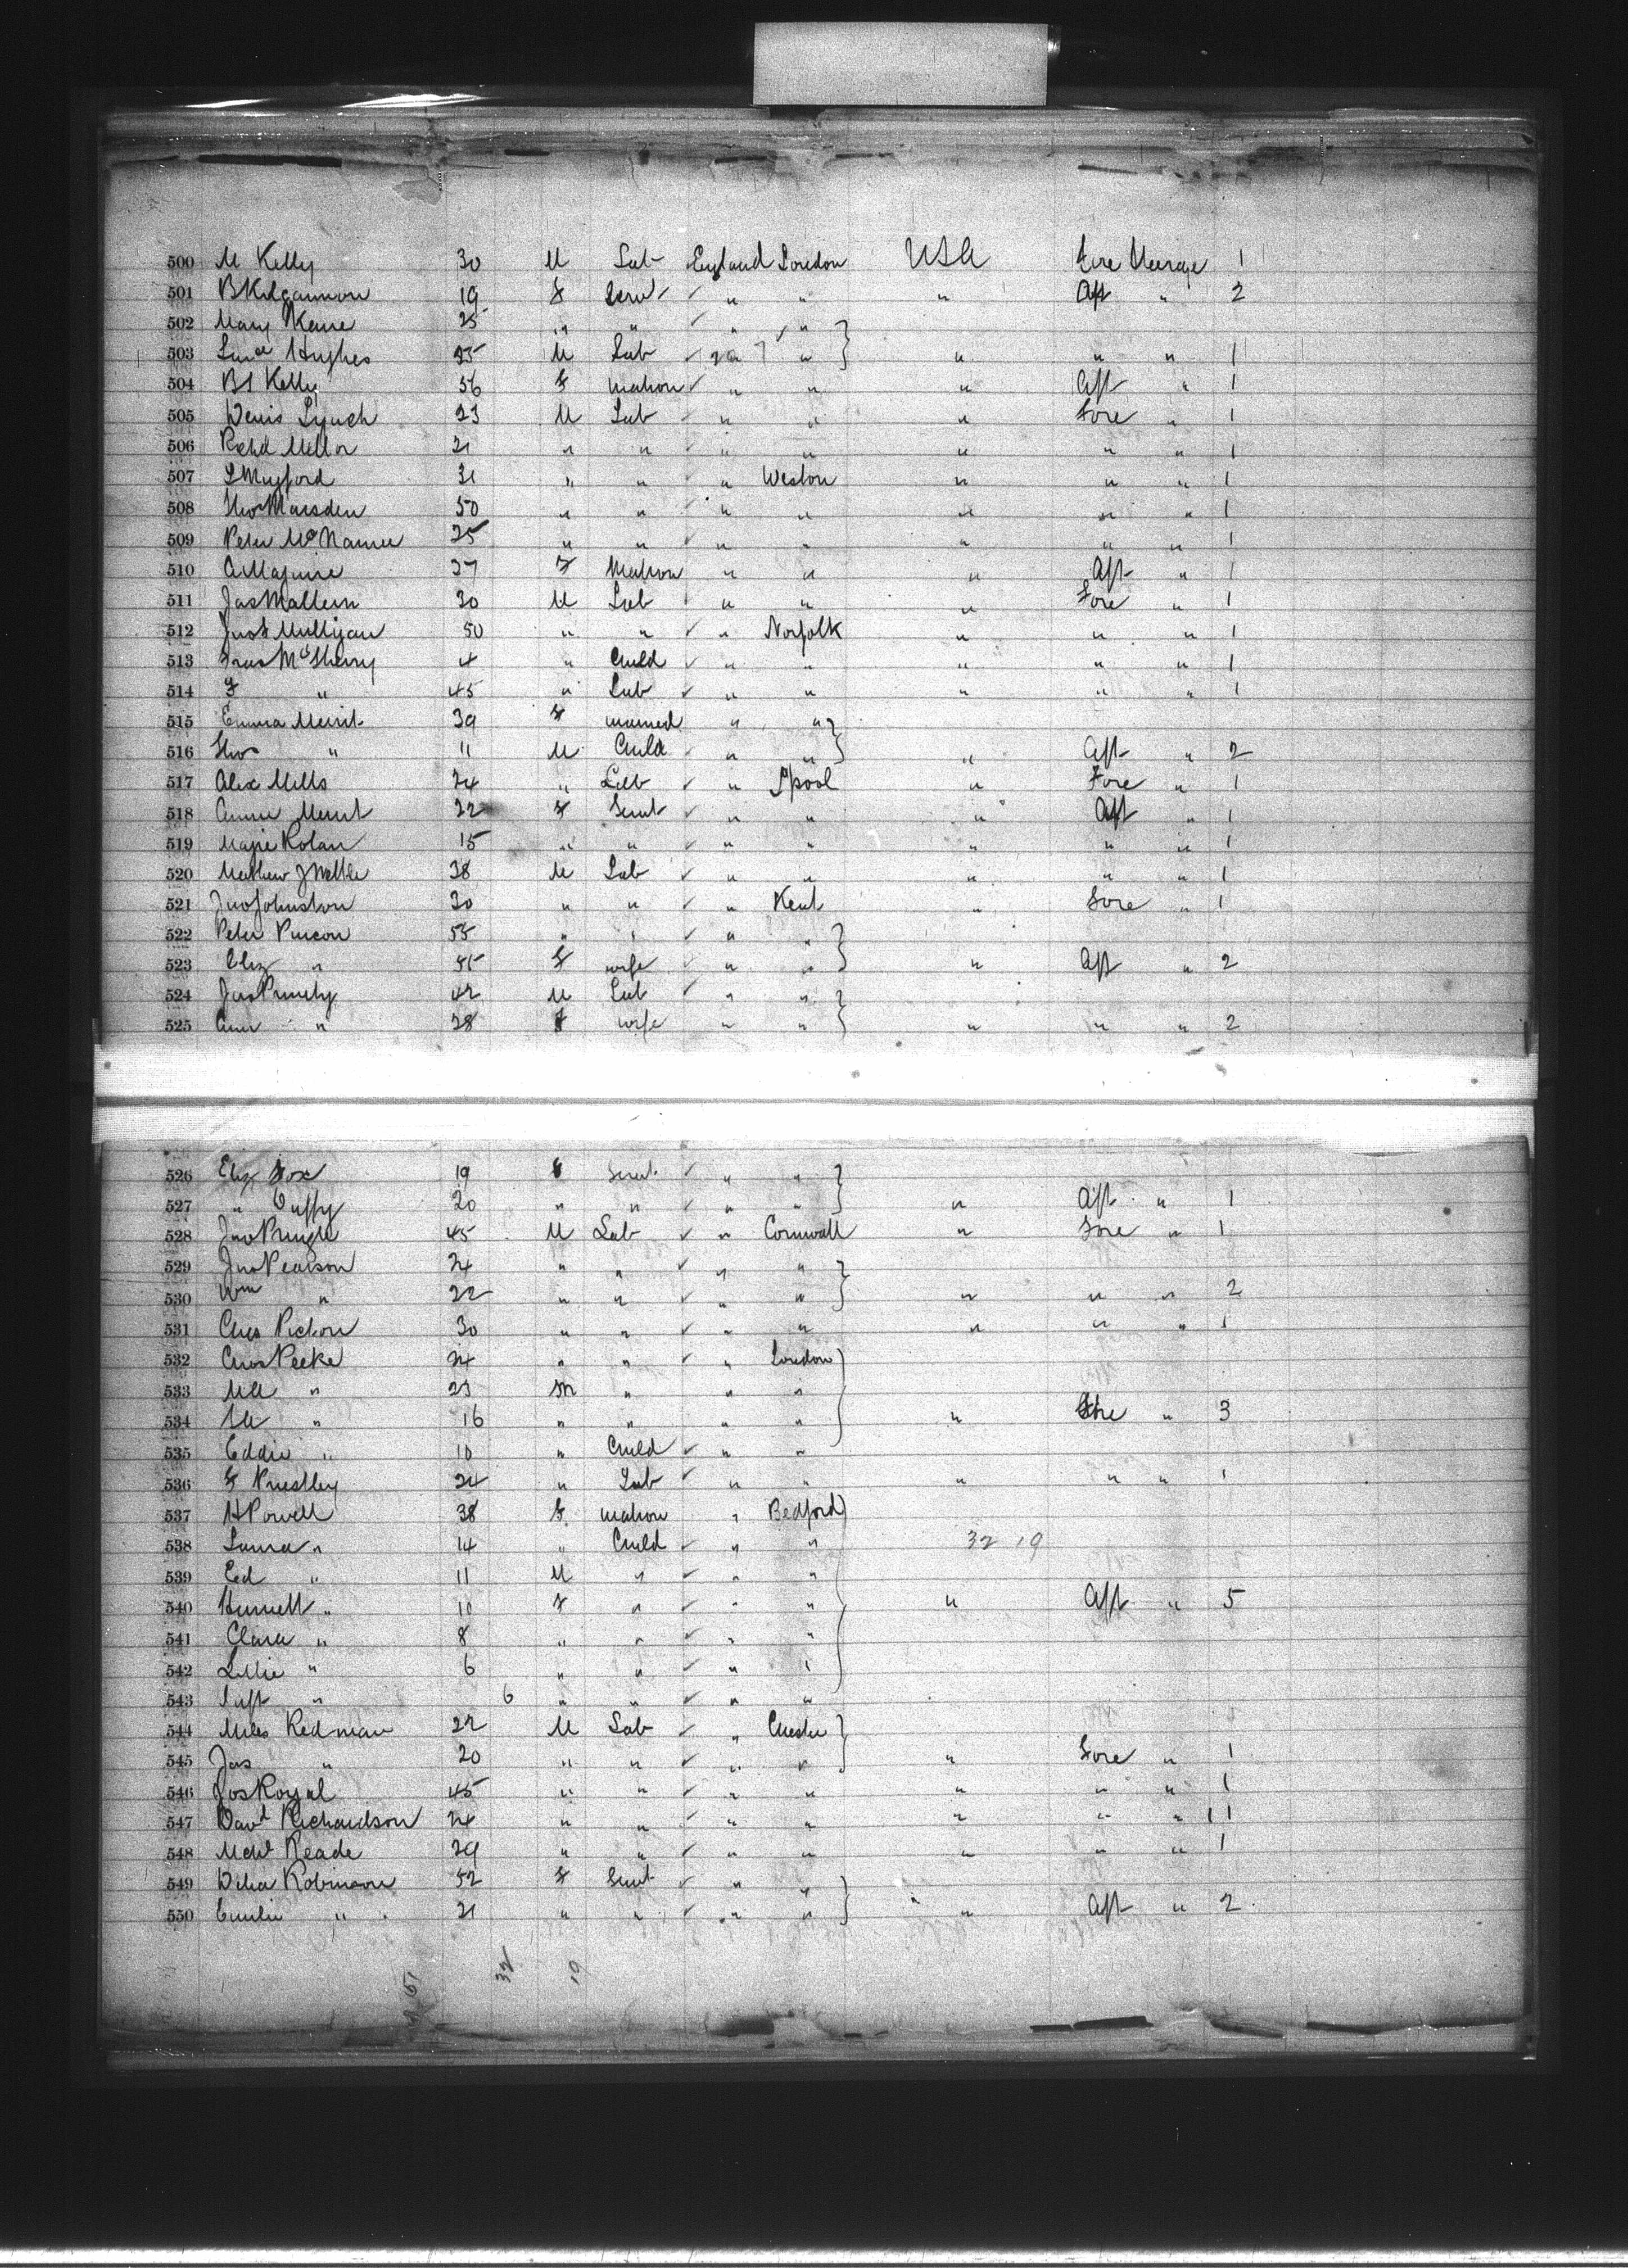 500 M Kelly 30 M Lab England London USA Fore Steerage 1
501 B Kilgannon 19 F Serv " " " Aft " 2
502 Mary Kane 25 " " " " }
503 Hughes 25 M Lab " } " " " 1
504 Bt Kelly 56 F matron " " " Aft " 1
505 Denis Lynch 23 M Lab " " " Fore " 1
506 Richd Mellor 21 " " " " " " " 1
507 S Mugford 31 " " " Weston " " " 1
508 Thos Marsden 50 " " " " " " " 1
509 Peter McNamee 25 " " " " " " " 1
510 A Maguire 27 F Matron " " " Aft " 1
511 Jas Mallern 30 M Lab " " " Fore " 1
512 Mulligan 50 " " " Norfolk " " " 1
513 McSherry 4 " Child " " " " " 1
514 F " 45 " Lab " " " " " 1
515 Emma Merrit 39 F married " " }
516 Thos " 11 M Child " " } " Aft " 2
517 Alex Mills 24 " Lab " Lpool " Fore " 1
518 Annie Merrit 22 F Servt " " " Aft " 1
519 Magie Rolan 15 " " " " " " " 1
520 Mathew J 38 M Lab " " " " " 1
521 Jno Johnston 30 " " " Kent " Fore " 1
522 Peter Purcon 55 " " " " }
523 Eliz " 55 F wife " " } " Aft " 2
524 Jas 42 M Lab " " }
525 Ann " 28 F wife " " } " " " 2
526 Eliz Fox 19 F Servt " " }
527 " Duffy 20 " " " " } " Aft " 1
528 Jno Pringle 45 M Lab " Cornwall " Fore " 1
529 Jno Pearson 24 " " " " }
530 Wm " 22 " " " " } " " " 2
531 Chas Picton 30 " " " " " " " 1
532 Chas Peeke 24 " " " London }
533 " 23 m " " "
534 " 16 " " " " " Fore " 3
535 Eddie " 10 " Child " "
536 F Priestley 24 " Lab " " " " " 1
537 H Powell 38 F matron " Bedford }
538 Laura " 14 " Child " " 32 19
539 Ed " 11 M " " "
540 " 10 F " " " " Aft " 5
541 Clara " 8 " " " "
542 Lillie " 6 " " " "
543 Inft " 6 " " " "
544 Miles Redman 22 M Lab " Chester }
545 Jas " 20 " " " " } " Fore " 1
546 Jos Royal 45 " " " " " " " 1
547 Davd Richardson 24 " " " " " " " 1 1
548 Reade 29 " " " " " " " 1
549 Delia Robinson 52 F Servt " " }
550 Emilie " 21 " " " " } " Aft " 2
32 19